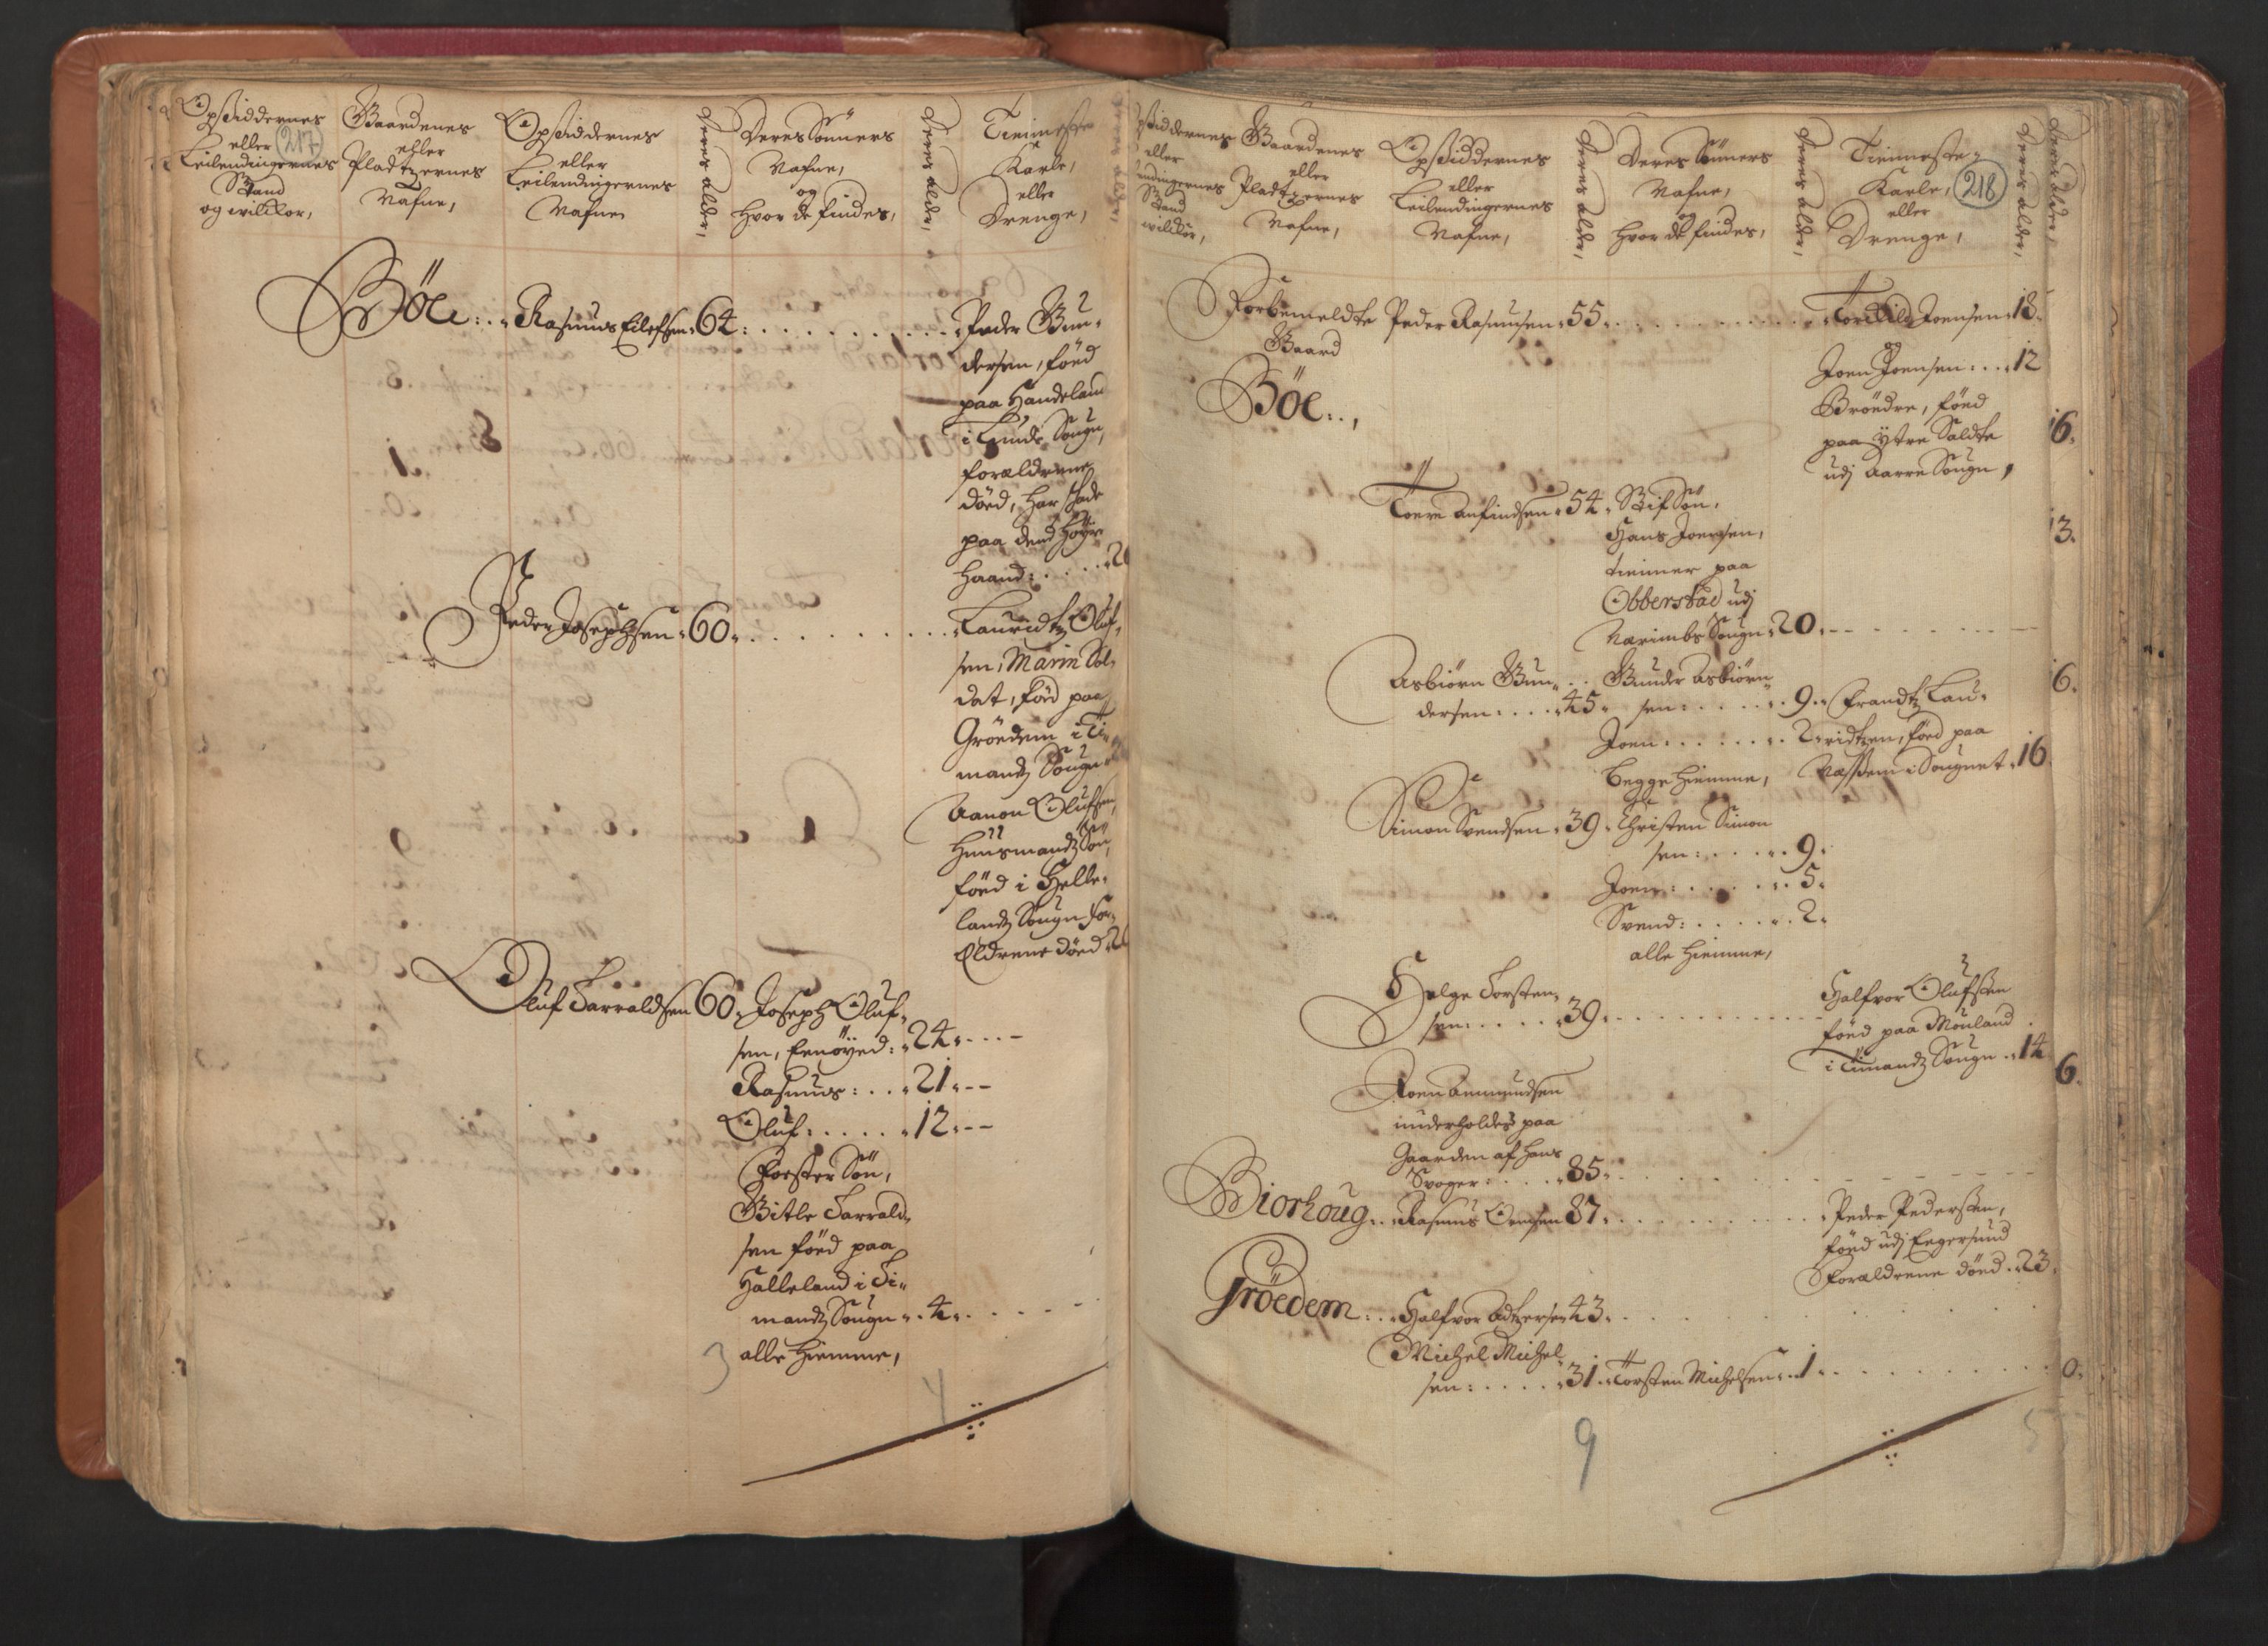 Opsiddernes
eller
Leilendingernes
Stand
og vilckor,
217
Gaardenes
eller
Pladtzernes
Nafne,
Opsiddernes
eller
Leilendingernes
Nafne
Deres alder,
Deres Sönners
Nafne,
og
hvor de findes,
Deres alder,
Tienneste
Karle,
eller
Drenge,
Böe:. Rasmus Eilefsen 64: Peder Gun-
dersen, föed
paa Handeland
i Lunde Sougn,
forældrene
döed, har skade
paa dend höyre
haand:
Peder Josephsen 60. Lauridtz Oluf-
sen, Marin Sol-
dat, föed paa
Gröedem i Ti-
mandz Sougn
Aanon Olufsen,
Huusmandz Sön,
föed i Helle-
landz Sougn For-
ældrene döed
Oluf Tarraldsen 60. Joseph Oluf-
sen, Eenöyed: 24.
Rasmus: 21.
Oluf: 12.
Foester Sön,
Gitle Tarrald-
sen föed paa
Halleland i Ti-
mandz Sougn 4.
3 alle hiemme,
4
siddernes
eller
endingernes
Stand
vilckor,
Gaardenes
eller
Pladtzernes
Nafne,
Opsiddernes
eller
Leilendingernes
Nafne,
Deres alder,
Deres Sönners
Nafne,
og
hvor de findes,
Deres alder,
Tienneste
Karle,
eller
Drenge,
218
Deres alder,
Deres alder,
Forbemeldte Peder Rasmusen 55. Torkild Joensen 18.
Gaard
og
Böe:.,
Joen Joensen: 12
Brödre, föed
paa Ytre Saldte
udj Aarre Sougn,
16.
Toere Anfindsen 54. Stif Sön,
Hans Joensen,
tienner paa
Obberstad udj
Nærimbs Sougn 20.
13.
Asbiörn Gun-
dersen: 45.
Gunder Asbiörn-
sen: 9. Frandtz Lau-
Joen: 2. ridtzen, föed paa
begge hiemme, Næssem i Sougnet 16
6.
Simon Svendsen 39. Christen Simon
sen: 9.
Joen: 5.
Svend: 2.
alle hiemme,
Helge Torsten-
sen: 39.
Halfvor Olufsen
föed paa Mouland
i Timandz Sougn 14
6.
Joen Aumundsen
underholdes paa
Gaarden af hans
Svoger: 85.
Biorhoug:. Rasmus Omsen 87. Peder Pedersen,
föed udj Eegersund
Forældrene döed 23.
Gröedem:. Halfvor Adzersen 43.
Michel Michel-
sen: 31. Torsten Michelsen 1.
0.
9
5